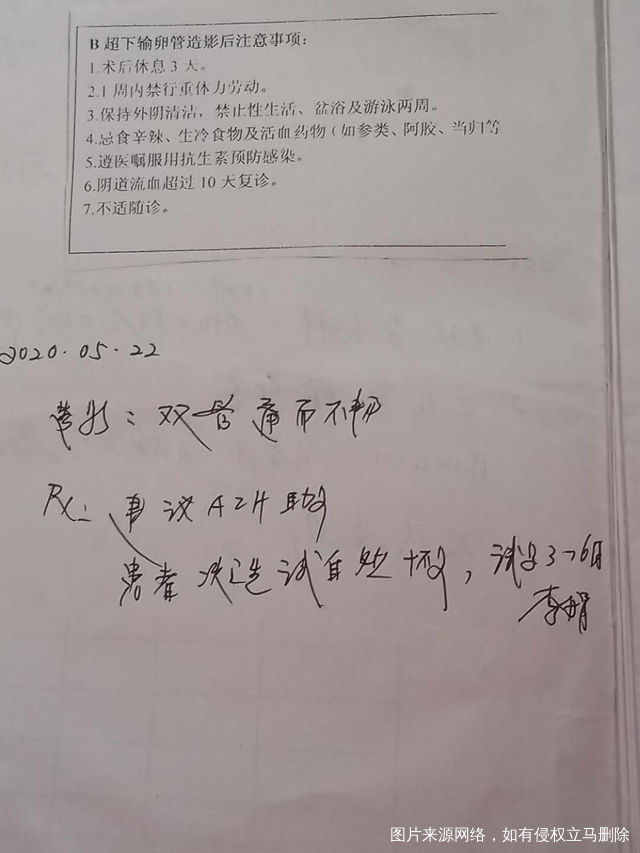 B 超下输卵管造影后注意事项：
1.术后休息 3 天。
2.1 周内禁行重体力劳动。
3.保持外阴清洁，禁止性生活、盆浴及游泳两周。
4.忌食辛辣、生冷食物及活血药物（如参类、阿胶、当归等
5.遵医嘱服用抗生素预防感染。
6.阴道流血超过 10 天复诊。
7.不适随诊。
2020.05.22
造影：双管通而不畅
Rx:
患者 试自然怀孕，试孕3-6月
图片来源网络，如有侵权立马删除